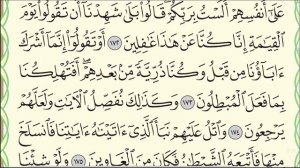 عَلَىٰٓ أَنفُسِهِمْ أَلَسْتُ بِرَبِّكُمْ قَالُوا۟ بَلَىٰ شَهِدْنَآ أَن تَقُولُوا۟ يَوْمَ
ٱلْقِيَٰمَةِ إِنَّا كُنَّا عَنْ هَٰذَا غَٰفِلِينَ ١٧٢ أَوْ تَقُولُوٓا۟ إِنَّمَآ أَشْرَكَ
ءَابَآؤُنَا مِن قَبْلُ وَكُنَّا ذُرِّيَّةً مِّنۢ بَعْدِهِمْ أَفَتُهْلِكُنَا
بِمَا فَعَلَ ٱلْمُبْطِلُونَ ١٧٣ وَكَذَٰلِكَ نُفَصِّلُ ٱلْءَايَٰتِ وَلَعَلَّهُمْ
يَرْجِعُونَ ١٧٤ وَٱتْلُ عَلَيْهِمْ نَبَأَ ٱلَّذِىٓ ءَاتَيْنَٰهُ ءَايَٰتِنَا فَٱنسَلَخَ
مِنْهَا فَأَتْبَعَهُ ٱلشَّيْطَٰنُ فَكَانَ مِنَ ٱلْغَاوِينَ ١٧٥ وَلَوْ شِئْنَا